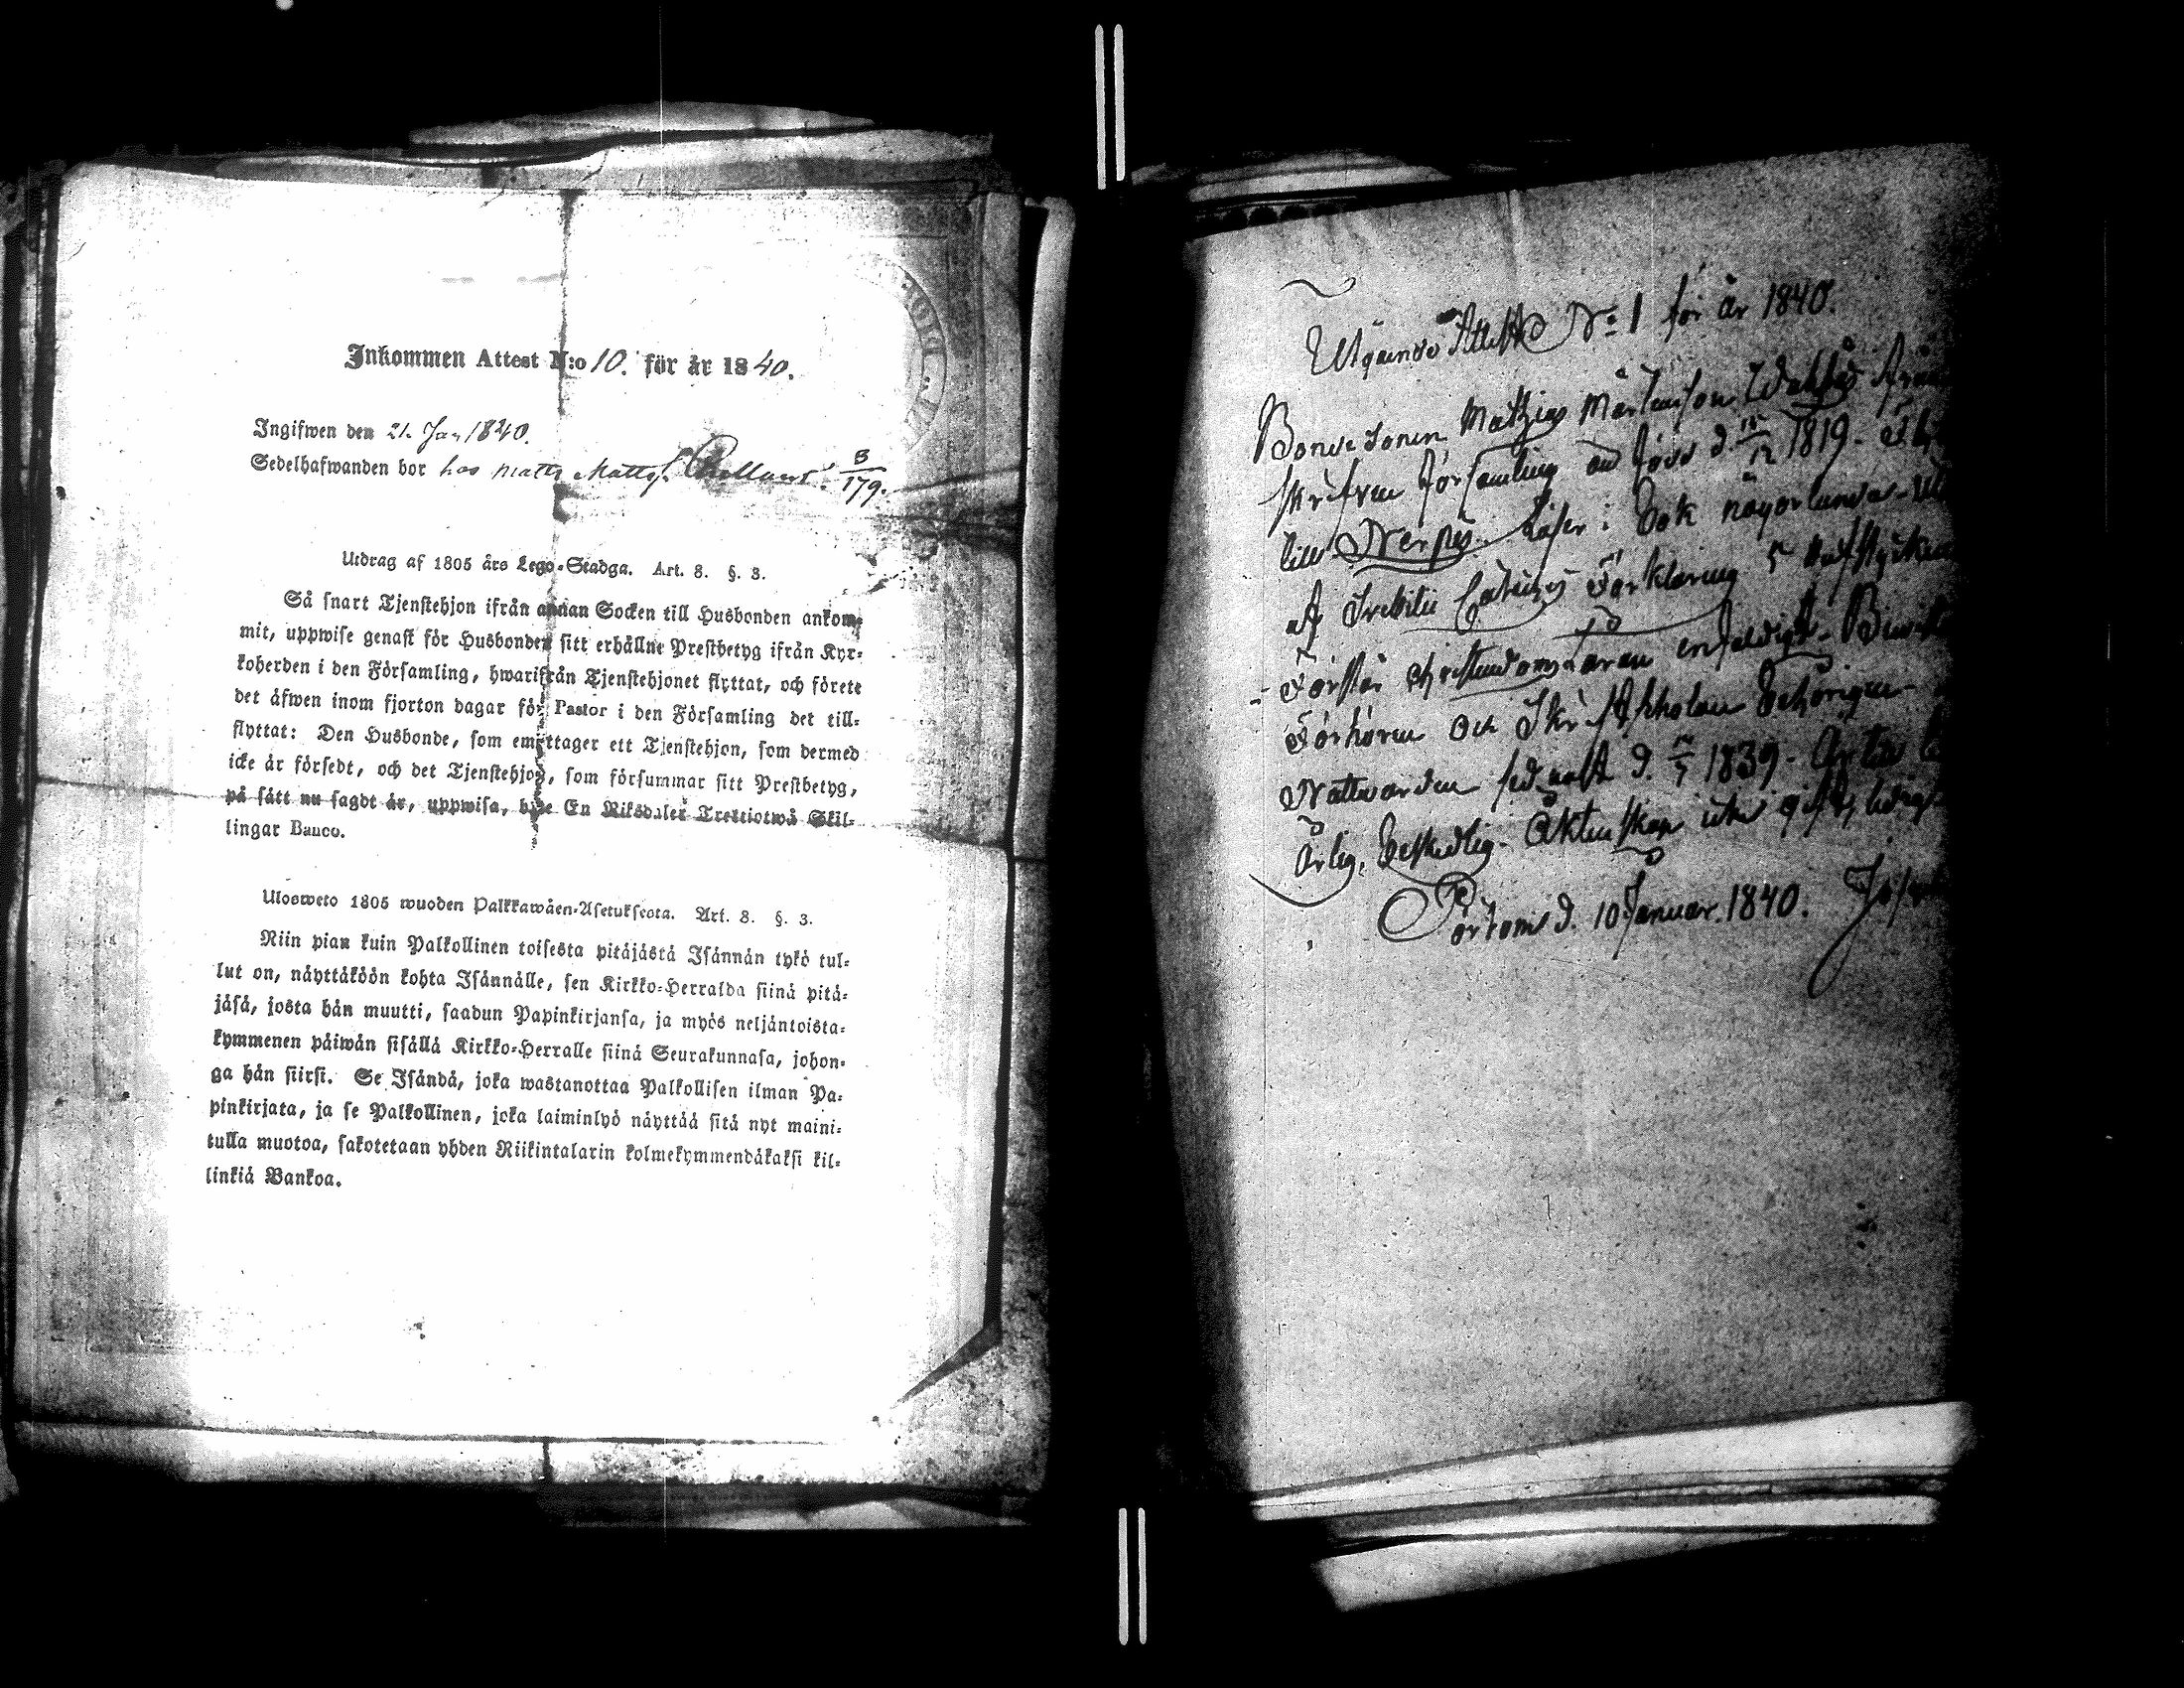 Inkommen Attest N:o 10. för år 1840.
Ingifwen den 21. Jan 1840.
Sedelhafwanden bor hos Matts Mattsʃ. 5/179.
Utdrag af 1805 års Lego-Stadga. Art. 8. §. 3.
Så snart Tjenstehjon ifrån annan Socken till Husbonden ankom-
mit, uppwise genast för Husbonden sitt erhållne Prestbetyg ifrån Kyr-
koherden i den Församling, hwarifrån Tjenstehjonet flyttat, och förete
det äfwen inom fjorton dagar för Pastor i den Församling det till-
flyttat: Den Husbonde, som emottager ett Tjenstehjon, som dermed
icke är försedt, och det Tjenstehjon, som försummar sitt Prestbetyg,
på sätt nu sagdt är, uppwisa, böte En Riksdaler Trettiotwå Skil-
lingar Banco.
Ulosweto 1805 wuoden Palkkawäen-Asetuksesta. Art. 8. §. 3.
Niin pian kuin Palkollinen toisesta pitäjästä Isännän tykö tul-
lut on, näyttäköön kohta Isännälle, sen Kirkko-Herralda siinä pitä-
jäsä, josta hän muutti, saadun Papinkirjansa, ja myös neljäntoista-
kymmenen päiwän sisällä Kirkko-Herralle siinä Seurakunnasa, johon-
ga hän siirsi. Se Isändä, joka wastanottaa Palkollisen ilman Pa-
pinkirjata, ja se Palkollinen, joka laiminlyö näyttää sitä nyt maini-
tulla muotoa, sakotetaan yhden Riikintalarin kolmekymmendäkaksi kil-
linkiä Bankoa.
Utgående Attest No 1 för år 1840.
Bonde Sonen Mathias Mårtensson
skrifven församling och född d. 12 1819.
till Nerpes. Läser i bok någorlunda
af Svebilii Catechis Förklaring 5 hufstycken
Förstår Christendoms Läran enfaldigt.
Förhören och Skriftskolan behörigen
Nattvarden sednast d. 1839.
ärlig, beskedlig. Äktenskap
Pörtom d. 10 Januar. 1840.